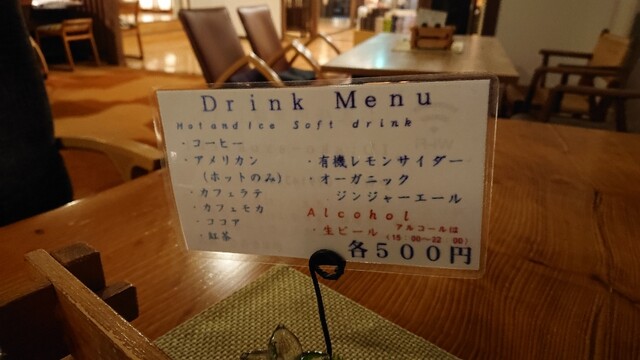 Drink Menu
Hot and Ice Soft drink
・コーヒー
・アメリカン
（ホットのみ）
・カフェラテ
・カフェモカ
・ココア
・紅茶
・有機レモンサイダー
・オーガニック
ジンジャーエール
Alcohol
・生ビール アルコールは
（15：00〜22：00）
各５００円